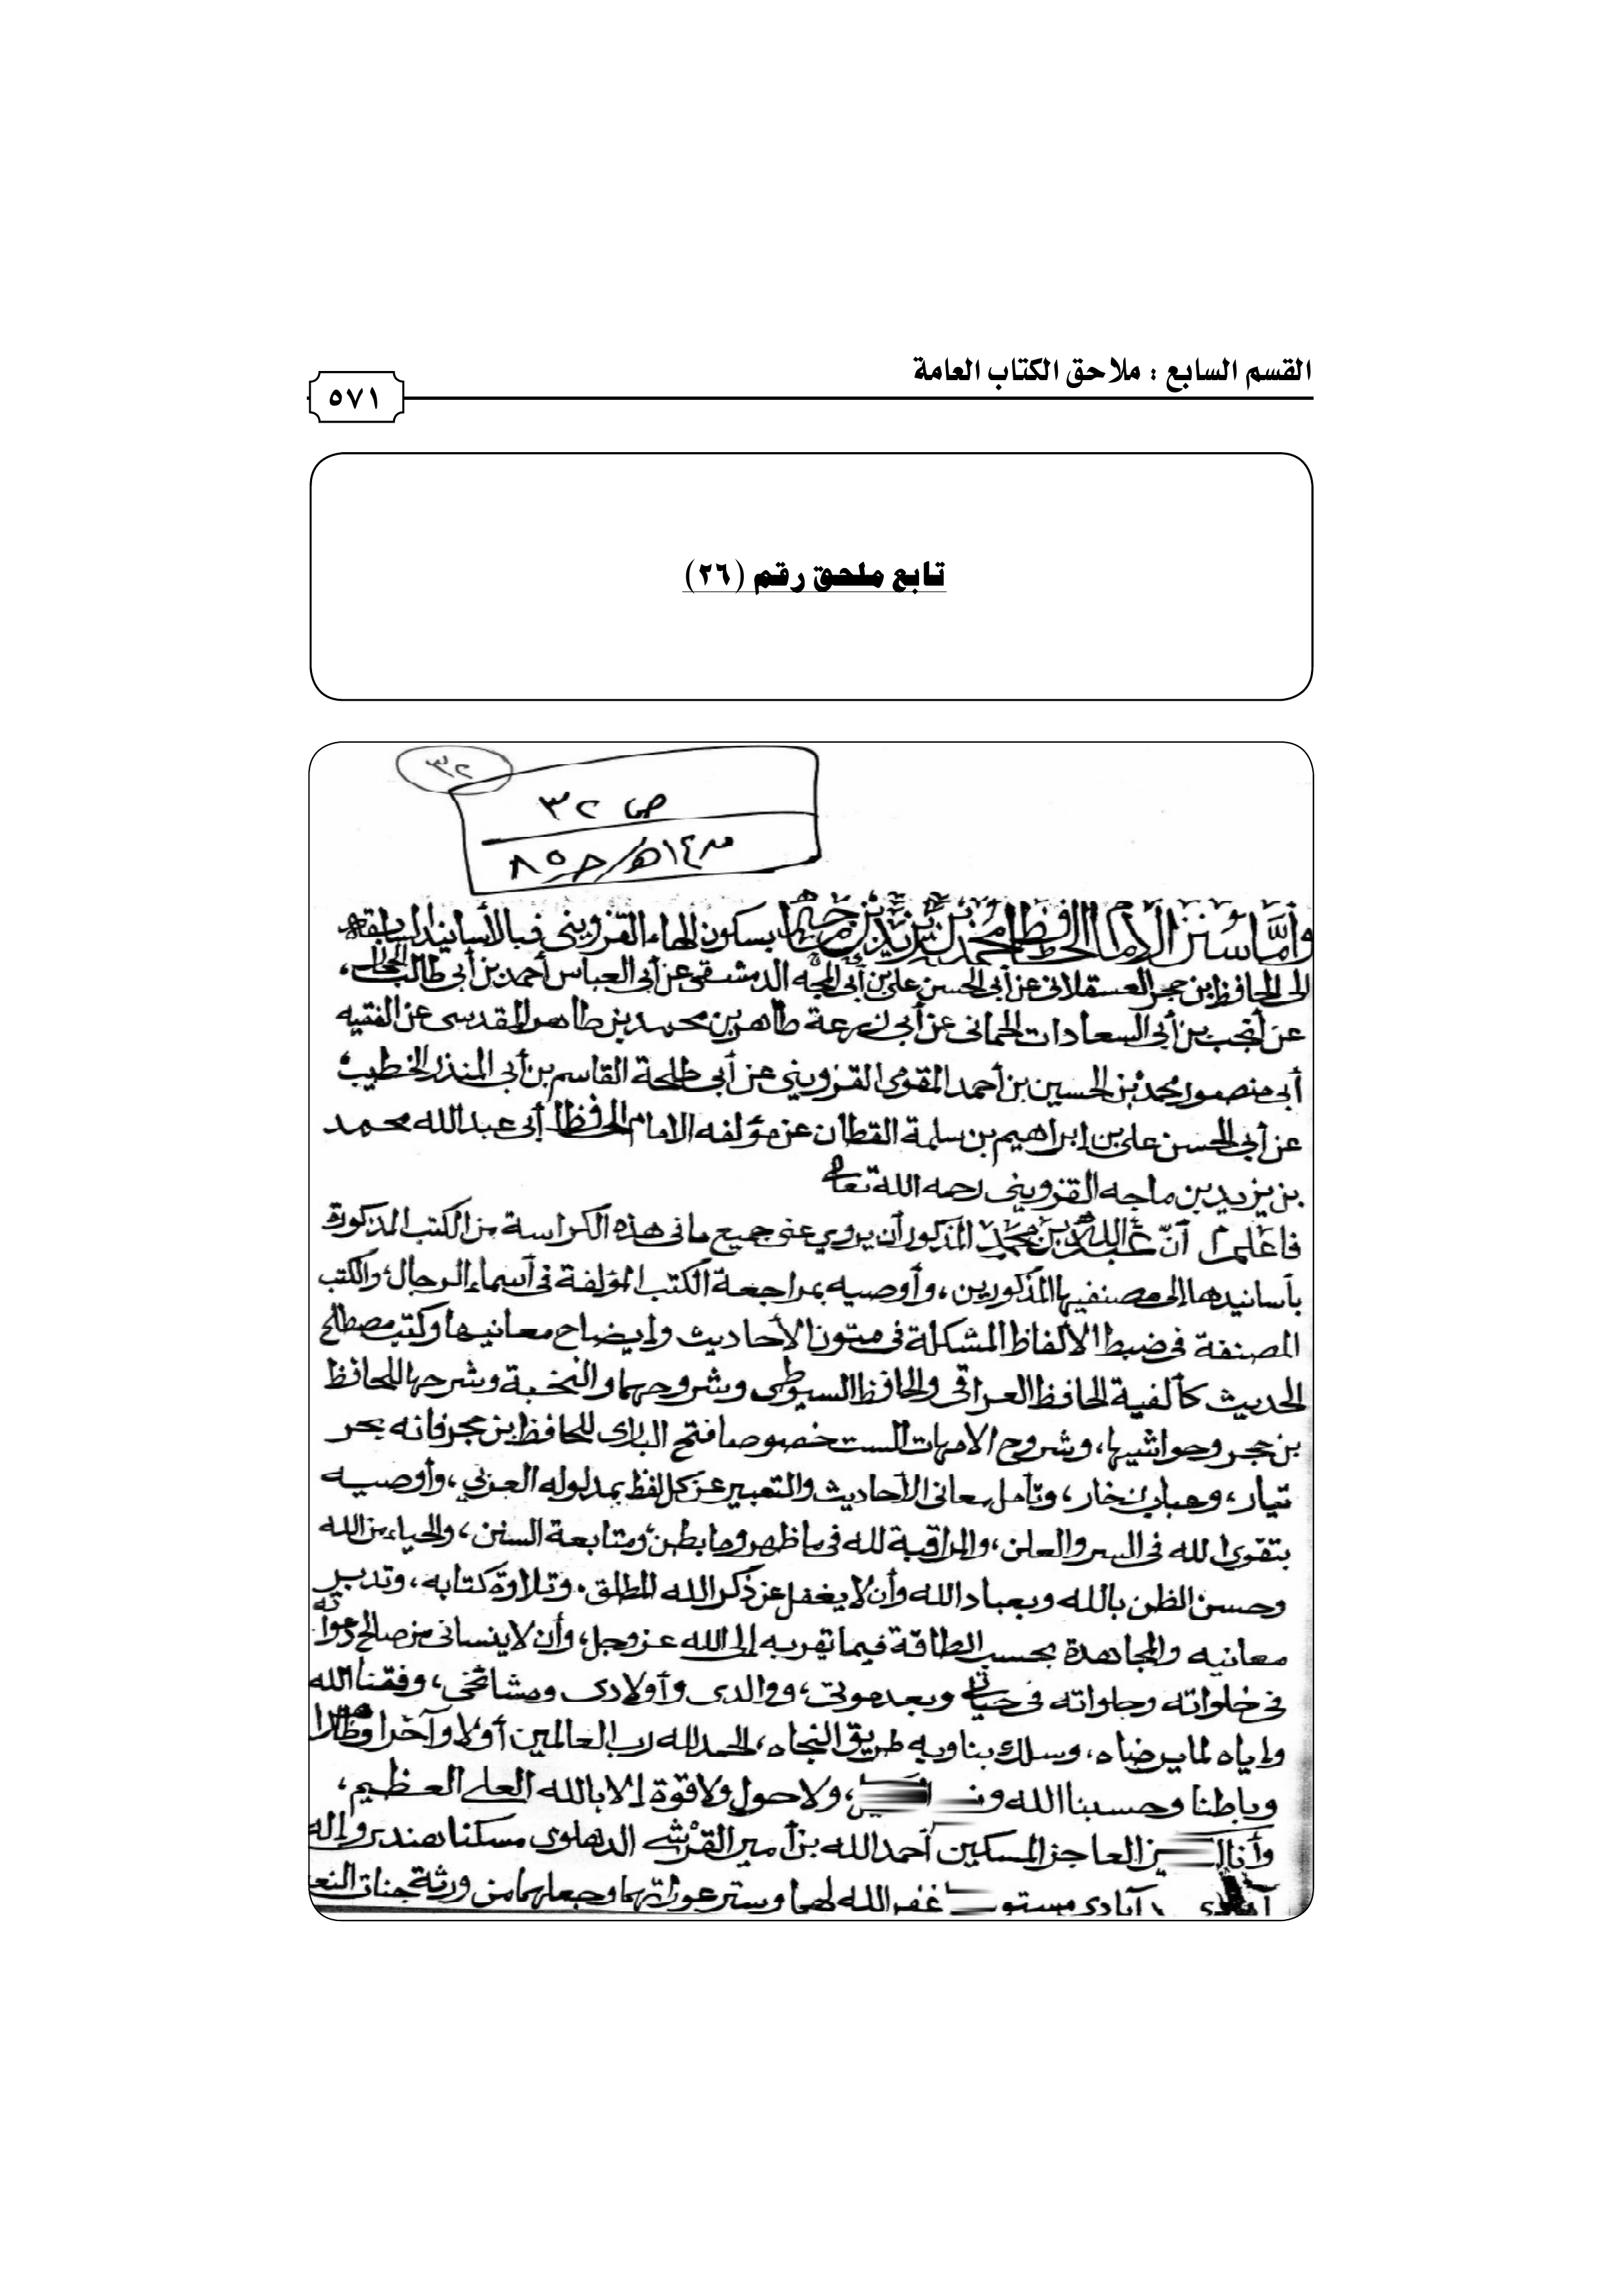 القسم السابع : ملاحق الكتاب العامة
٥٧١
تابع ملحق رقم (٢٦)
٣٢
ص ٣٢
وأما سنن الإمام الحافظ محمد بن يزيد بن ماجه بسكون الهاء القزويني فبالأسانيد السابقة
إلى الحافظ ابن حجر العسقلاني عن أبي الحسن علي بن أبي المجد الدمشقي عن أبي العباس أحمد بن أبي طالب الحجار،
عن أنجب بن أبي السعادات الحمامي عن أبي زرعة طاهر بن محمد بن طاهر المقدسي عن الفقيه
أبي منصور محمد بن الحسين بن أحمد المقومي القزويني عن أبي طلحة القاسم بن أبي المنذر الخطيب،
عن أبي الحسن علي بن إبراهيم بن سلمة القطان عن مؤلفه الامام الحافظ أبي عبد الله محمد
بن يزيد بن ماجه القزويني رحمه الله تعالى
فاعلم أنّ عبد الله بن محمد المذكور أن يروي عني جميع ما في هذه الكراسة من الكتب المذكورة
بأسانيدها إلى مصنفيها المذكورين، وأوصيه بمراجعة الكتب المؤلفة في أسماء الرجال، والكتب
المصنفة في ضبط الألفاظ المشكلة في متون الأحاديث وإيضاح معانيها وكتب مصطلح
الحديث كألفية الحافظ العراقي والحافظ السيوطي وشروحهما والنخبة وشرحها للحافظ
بن حجر وحواشيها، وشروح الامهات الست خصوصا فتح الباري للحافظ ابن حجر فانه بحر
تيار، وعباب زخار، وتأمل معاني الأحاديث والتعبير عن كل لفظ بمدلوله العربي، وأوصيه
بتقوى الله في السر والعلن، والمراقبة لله في ما ظهر وما بطن، ومتابعة السنن، والحياء من الله
وحسن الظن بالله وبعباد الله وأن لا يغفل عن ذكر الله المطلق. وتلاوة كتابه، وتدبر
معانيه والمجاهدة بحسب الطاقة فيما تقربه إلى الله عز وجل، وأن لا ينساني من صالح دعواته
في خلواته وجلواته في حياتي وبعد موتي، ووالدي وأولادي ومشائخي، وفقنا الله
وإياه لما يرضاه، وسلك بنا وبه طريق النجاه، الحمد لله رب العالمين أولا وآخرا وظاهرا
وباطنا وحسبنا الله و، ولا حول ولا قوة إلا بالله العلي العظيم،
وأنا العاجز المسكين أحمد الله بن أمير القرشي الدهلوي مسكنا
آبادي غفر الله لهما وستر عوراتهما وجعلهما من ورثة جنات النعيم